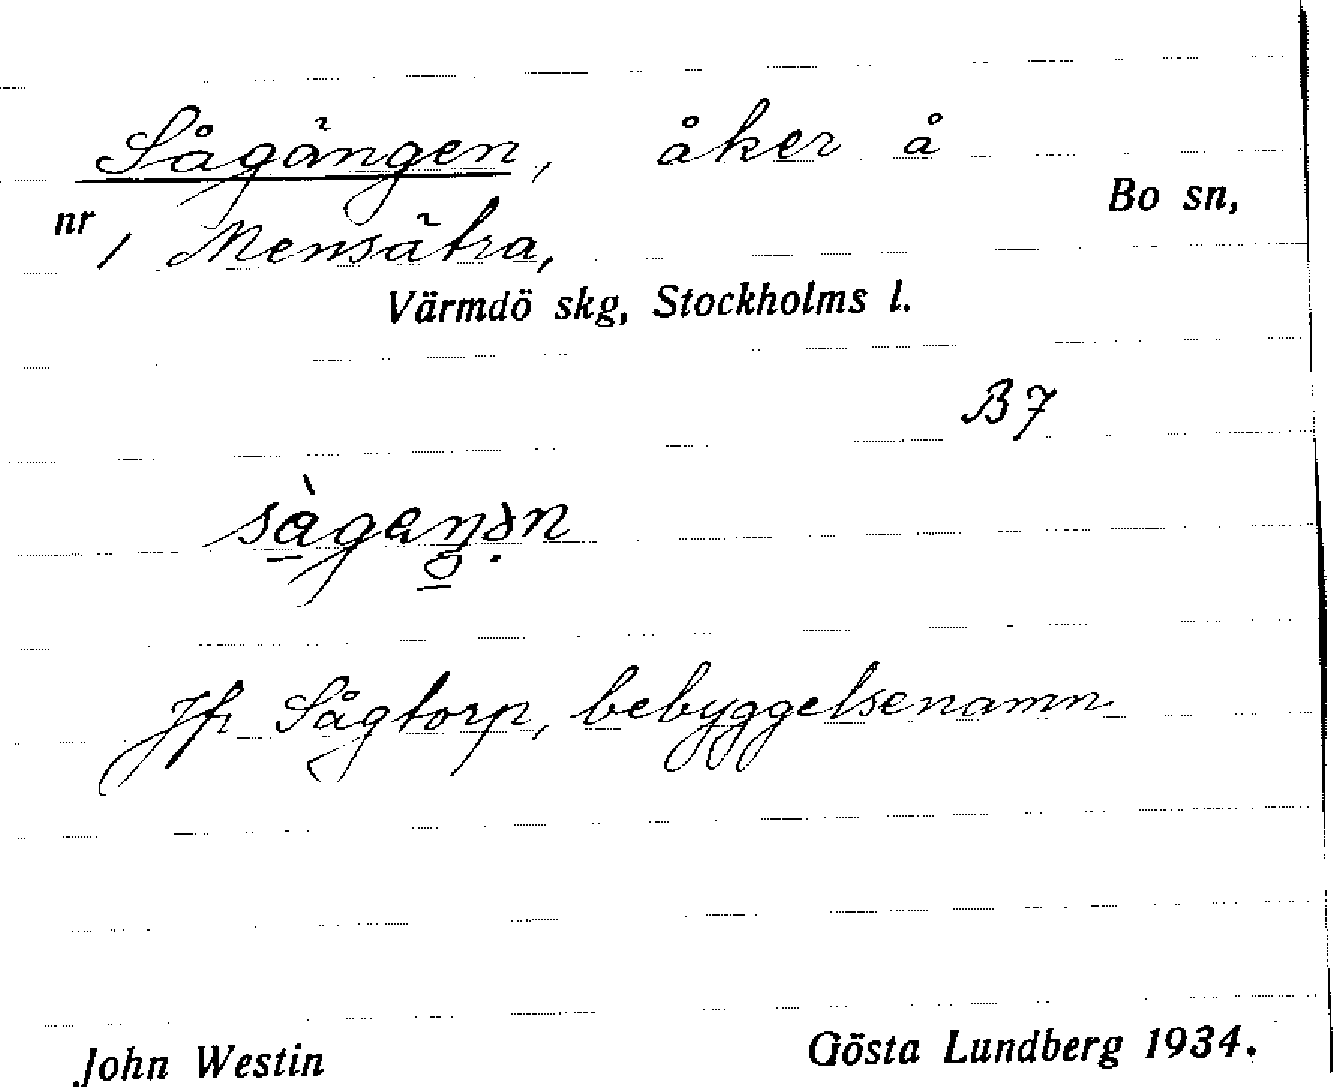 Sågängen, åker å
Bo sn,
nr 1 Mensätra,
Värmdö skg, Stockholms l.
B7
Jfr Sågtorp, bebyggelsenamn
John Westin
Gösta Lundberg 1934.